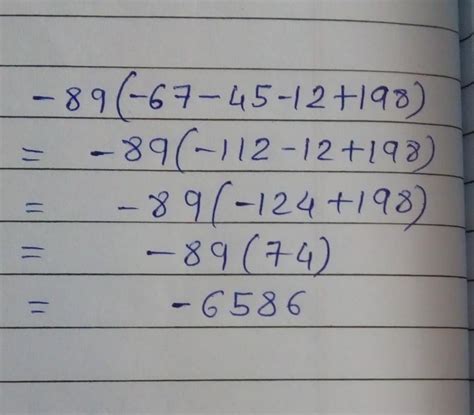 -89(-67-45-12+198)
= -89(-112-12+198)
= -89(-124+198)
= -89(74)
= -6586